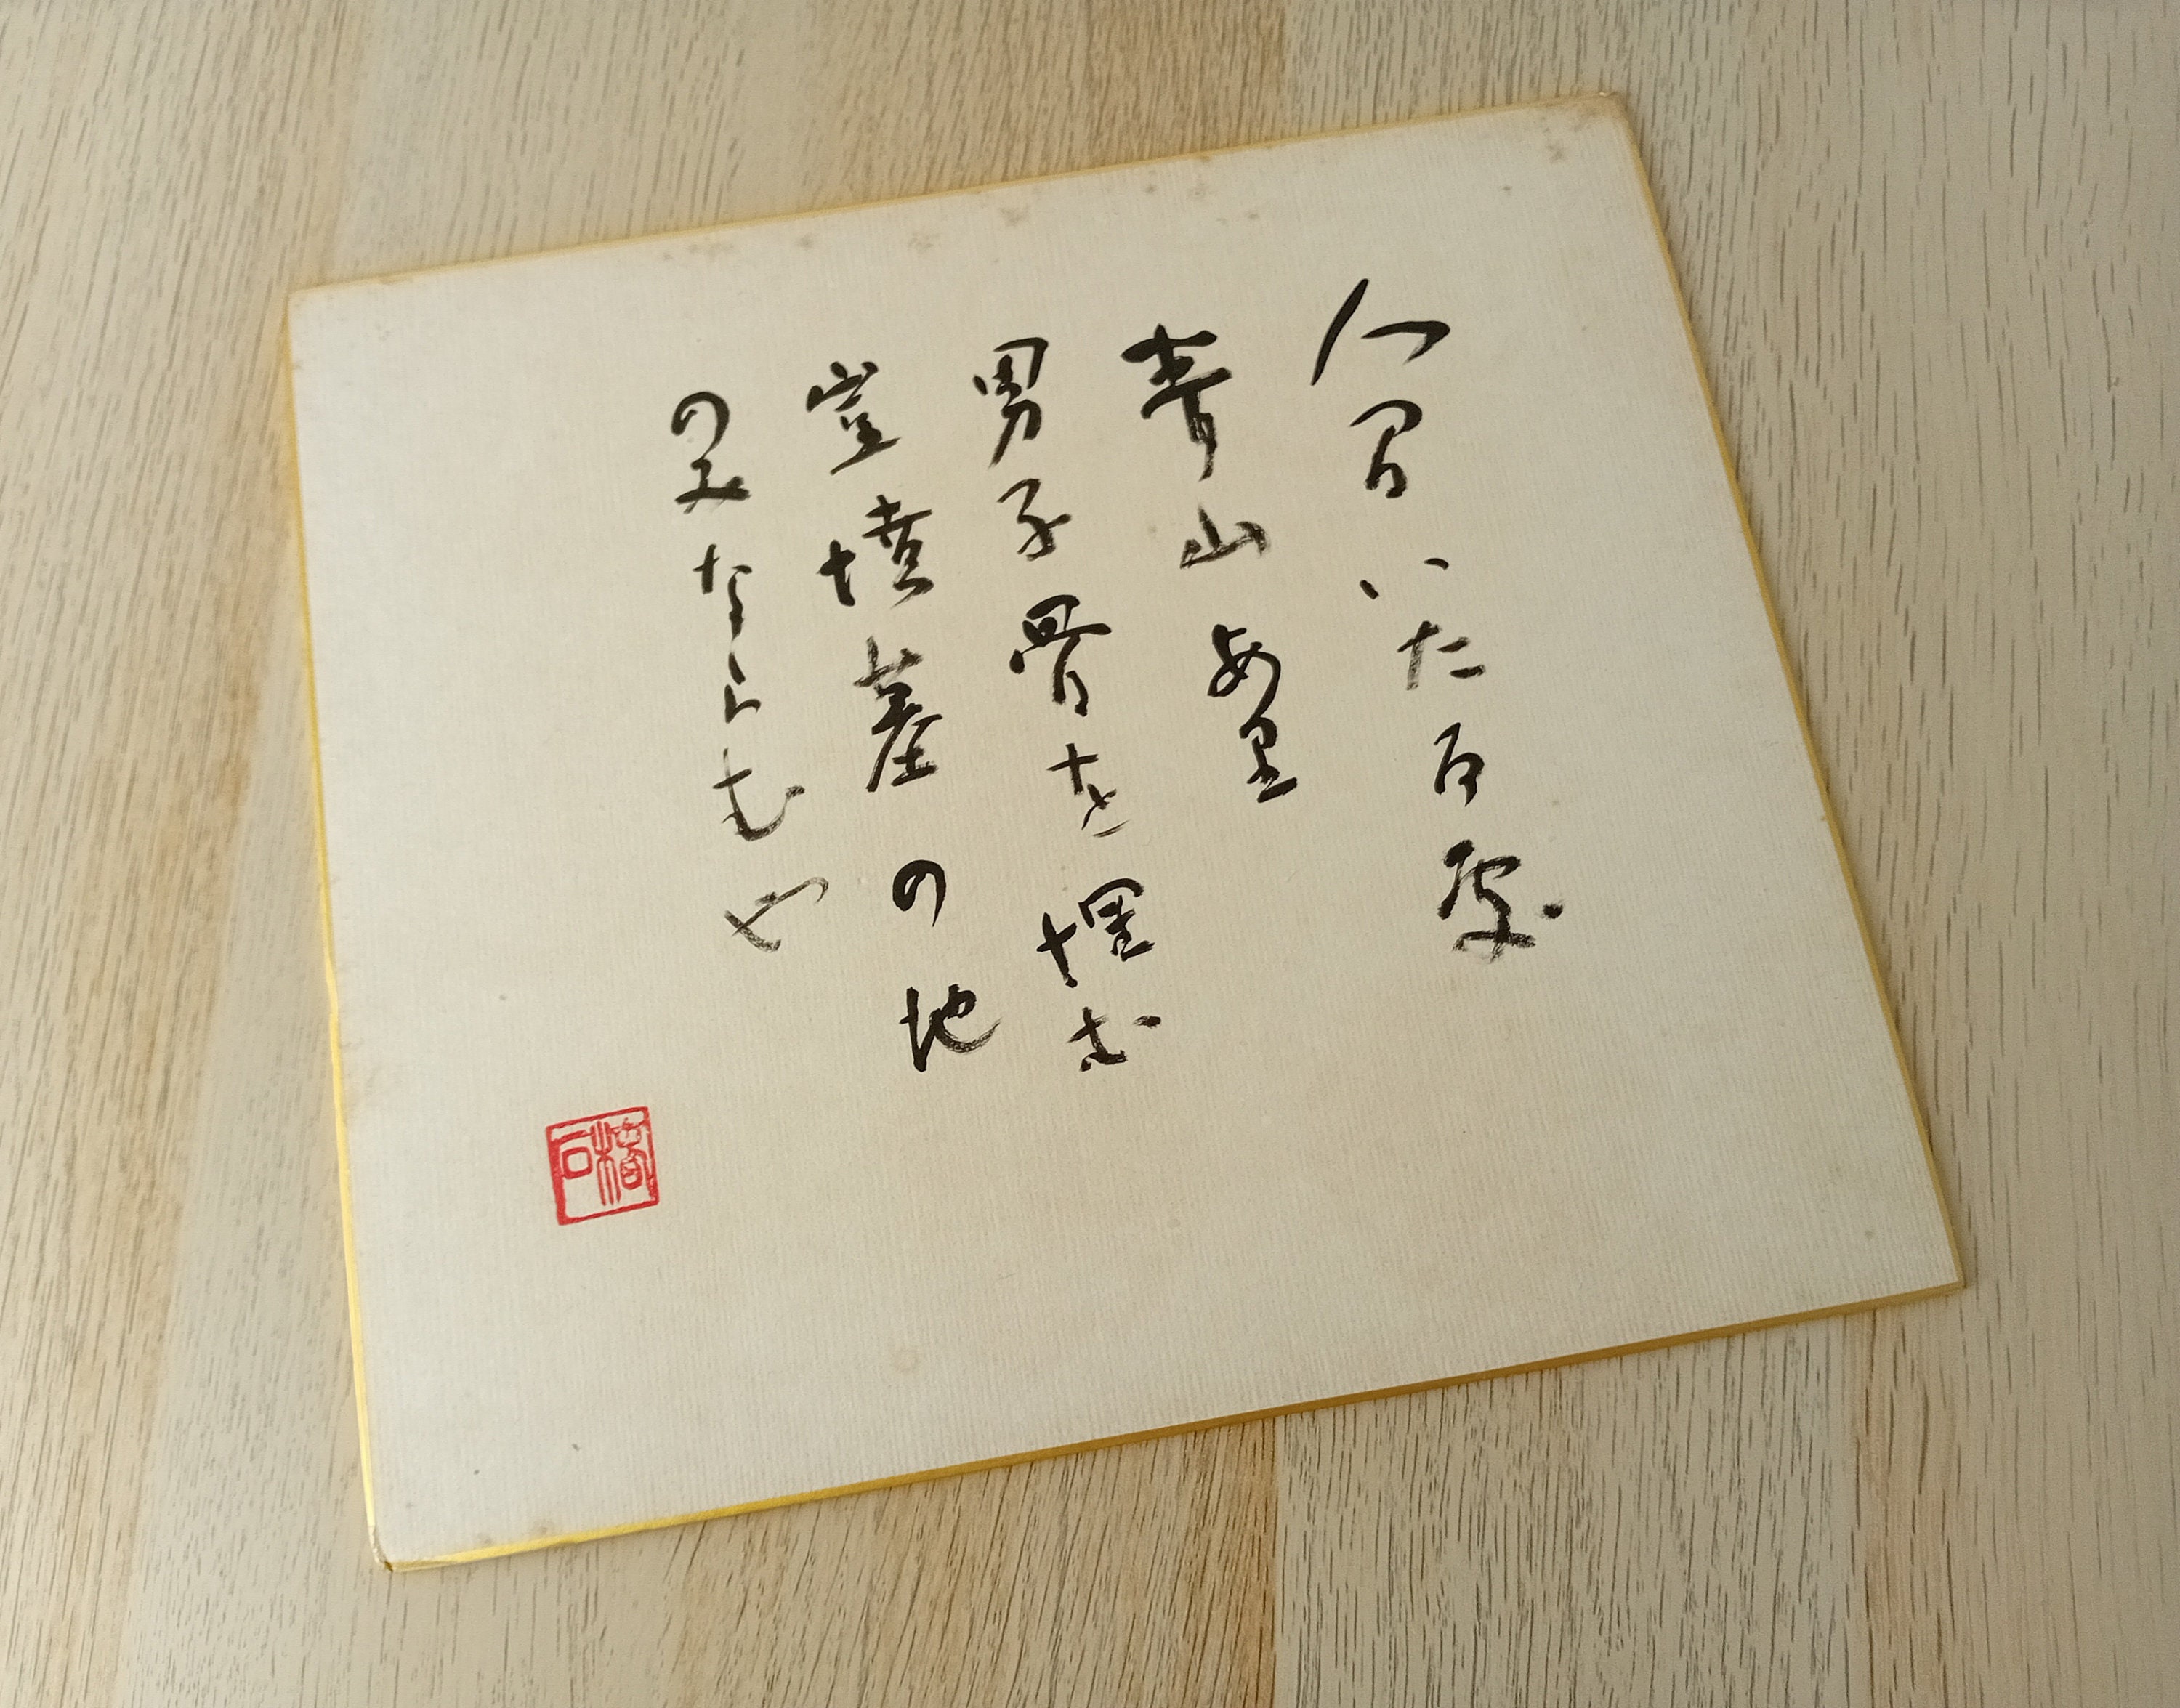 人間いたる處
青山あ里
男子骨を埋む
豈墳墓の地
のみならむや